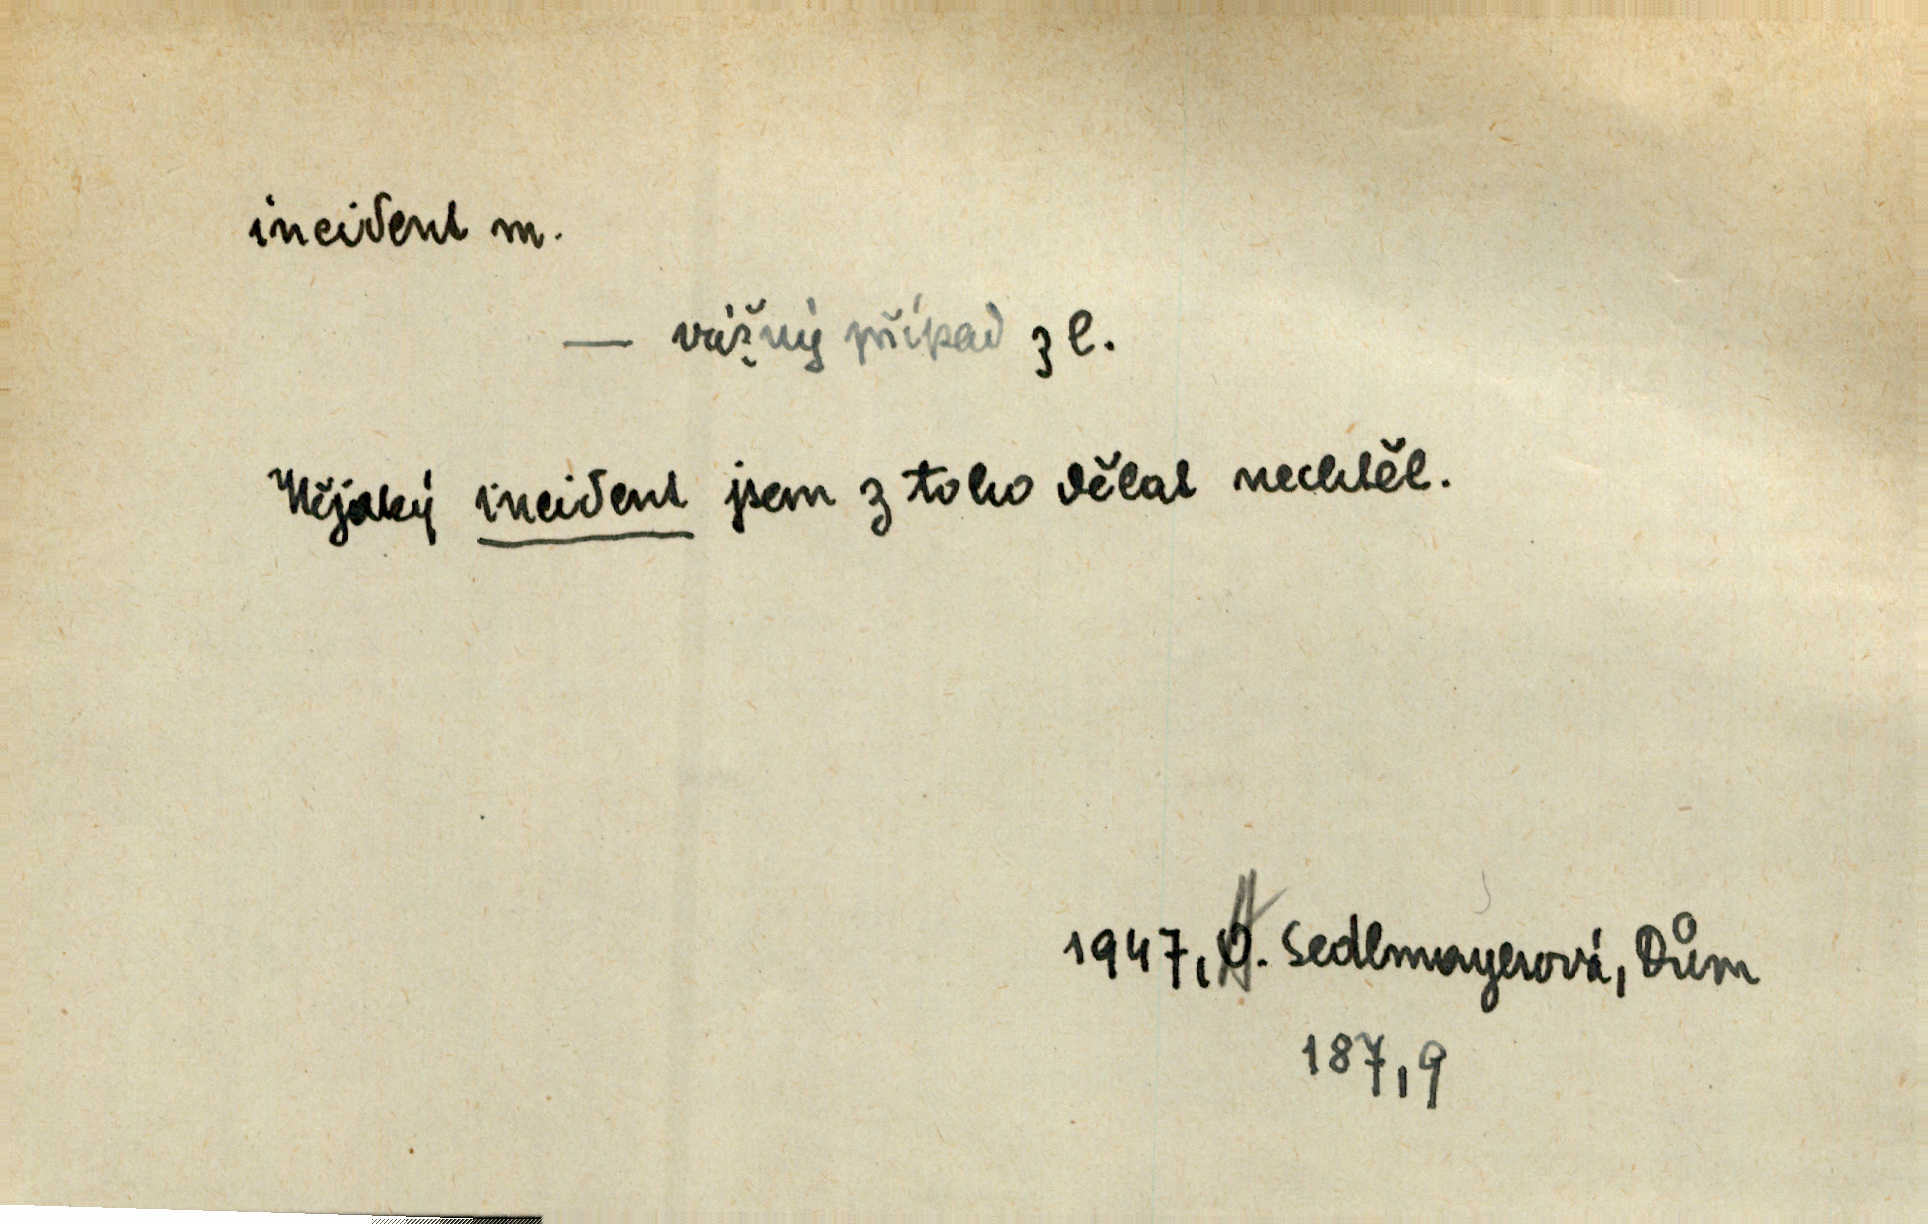 incident m.
— vážný případ z l.
Nějaký incident jsem z toho dělat nechtěl.
1947, A. Sedlmayerová, Dům
187,9